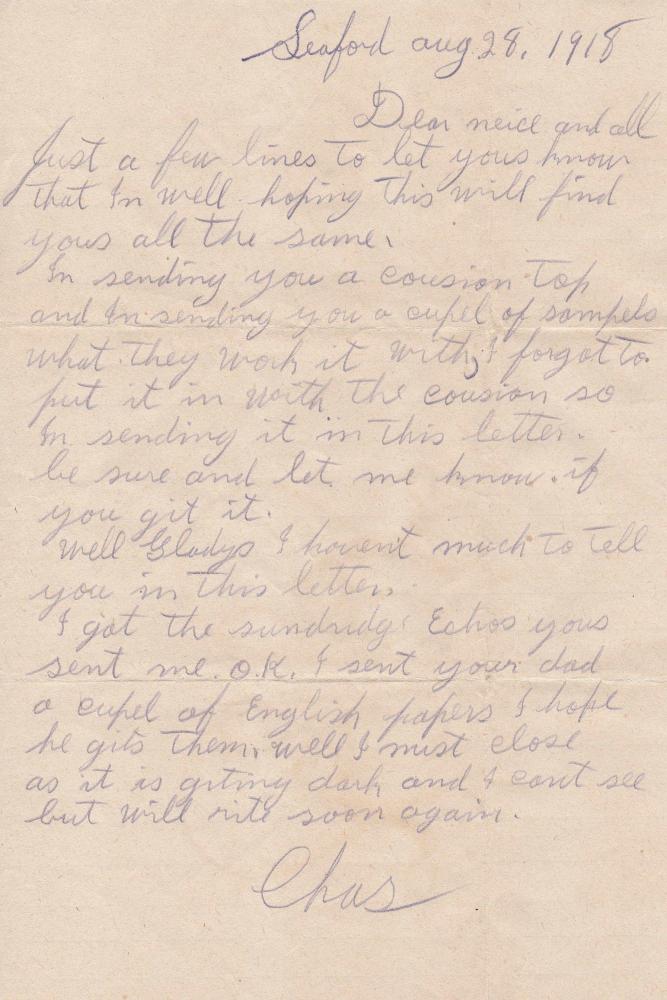 Seaford aug 28, 1918
Dear neice and all
Just a few lines to let yous know
that Im well. hoping this will find
yous all the same.
Im sending you a cousion top
and Im sending you a cupel of sampels
what they work it with, I forgot to
put it in with the cousion so
Im sending it in this letter.
be sure and let me know. if
you git it.
Well Gladys I havent much to tell
you in this letter.
I got the sundridg Echos yous
sent me. O.K. I sent your dad
a cupel of English papers I hope
he gits them, well I must close
as it is giting dark and I cant see
but will rite soon again.
Chas